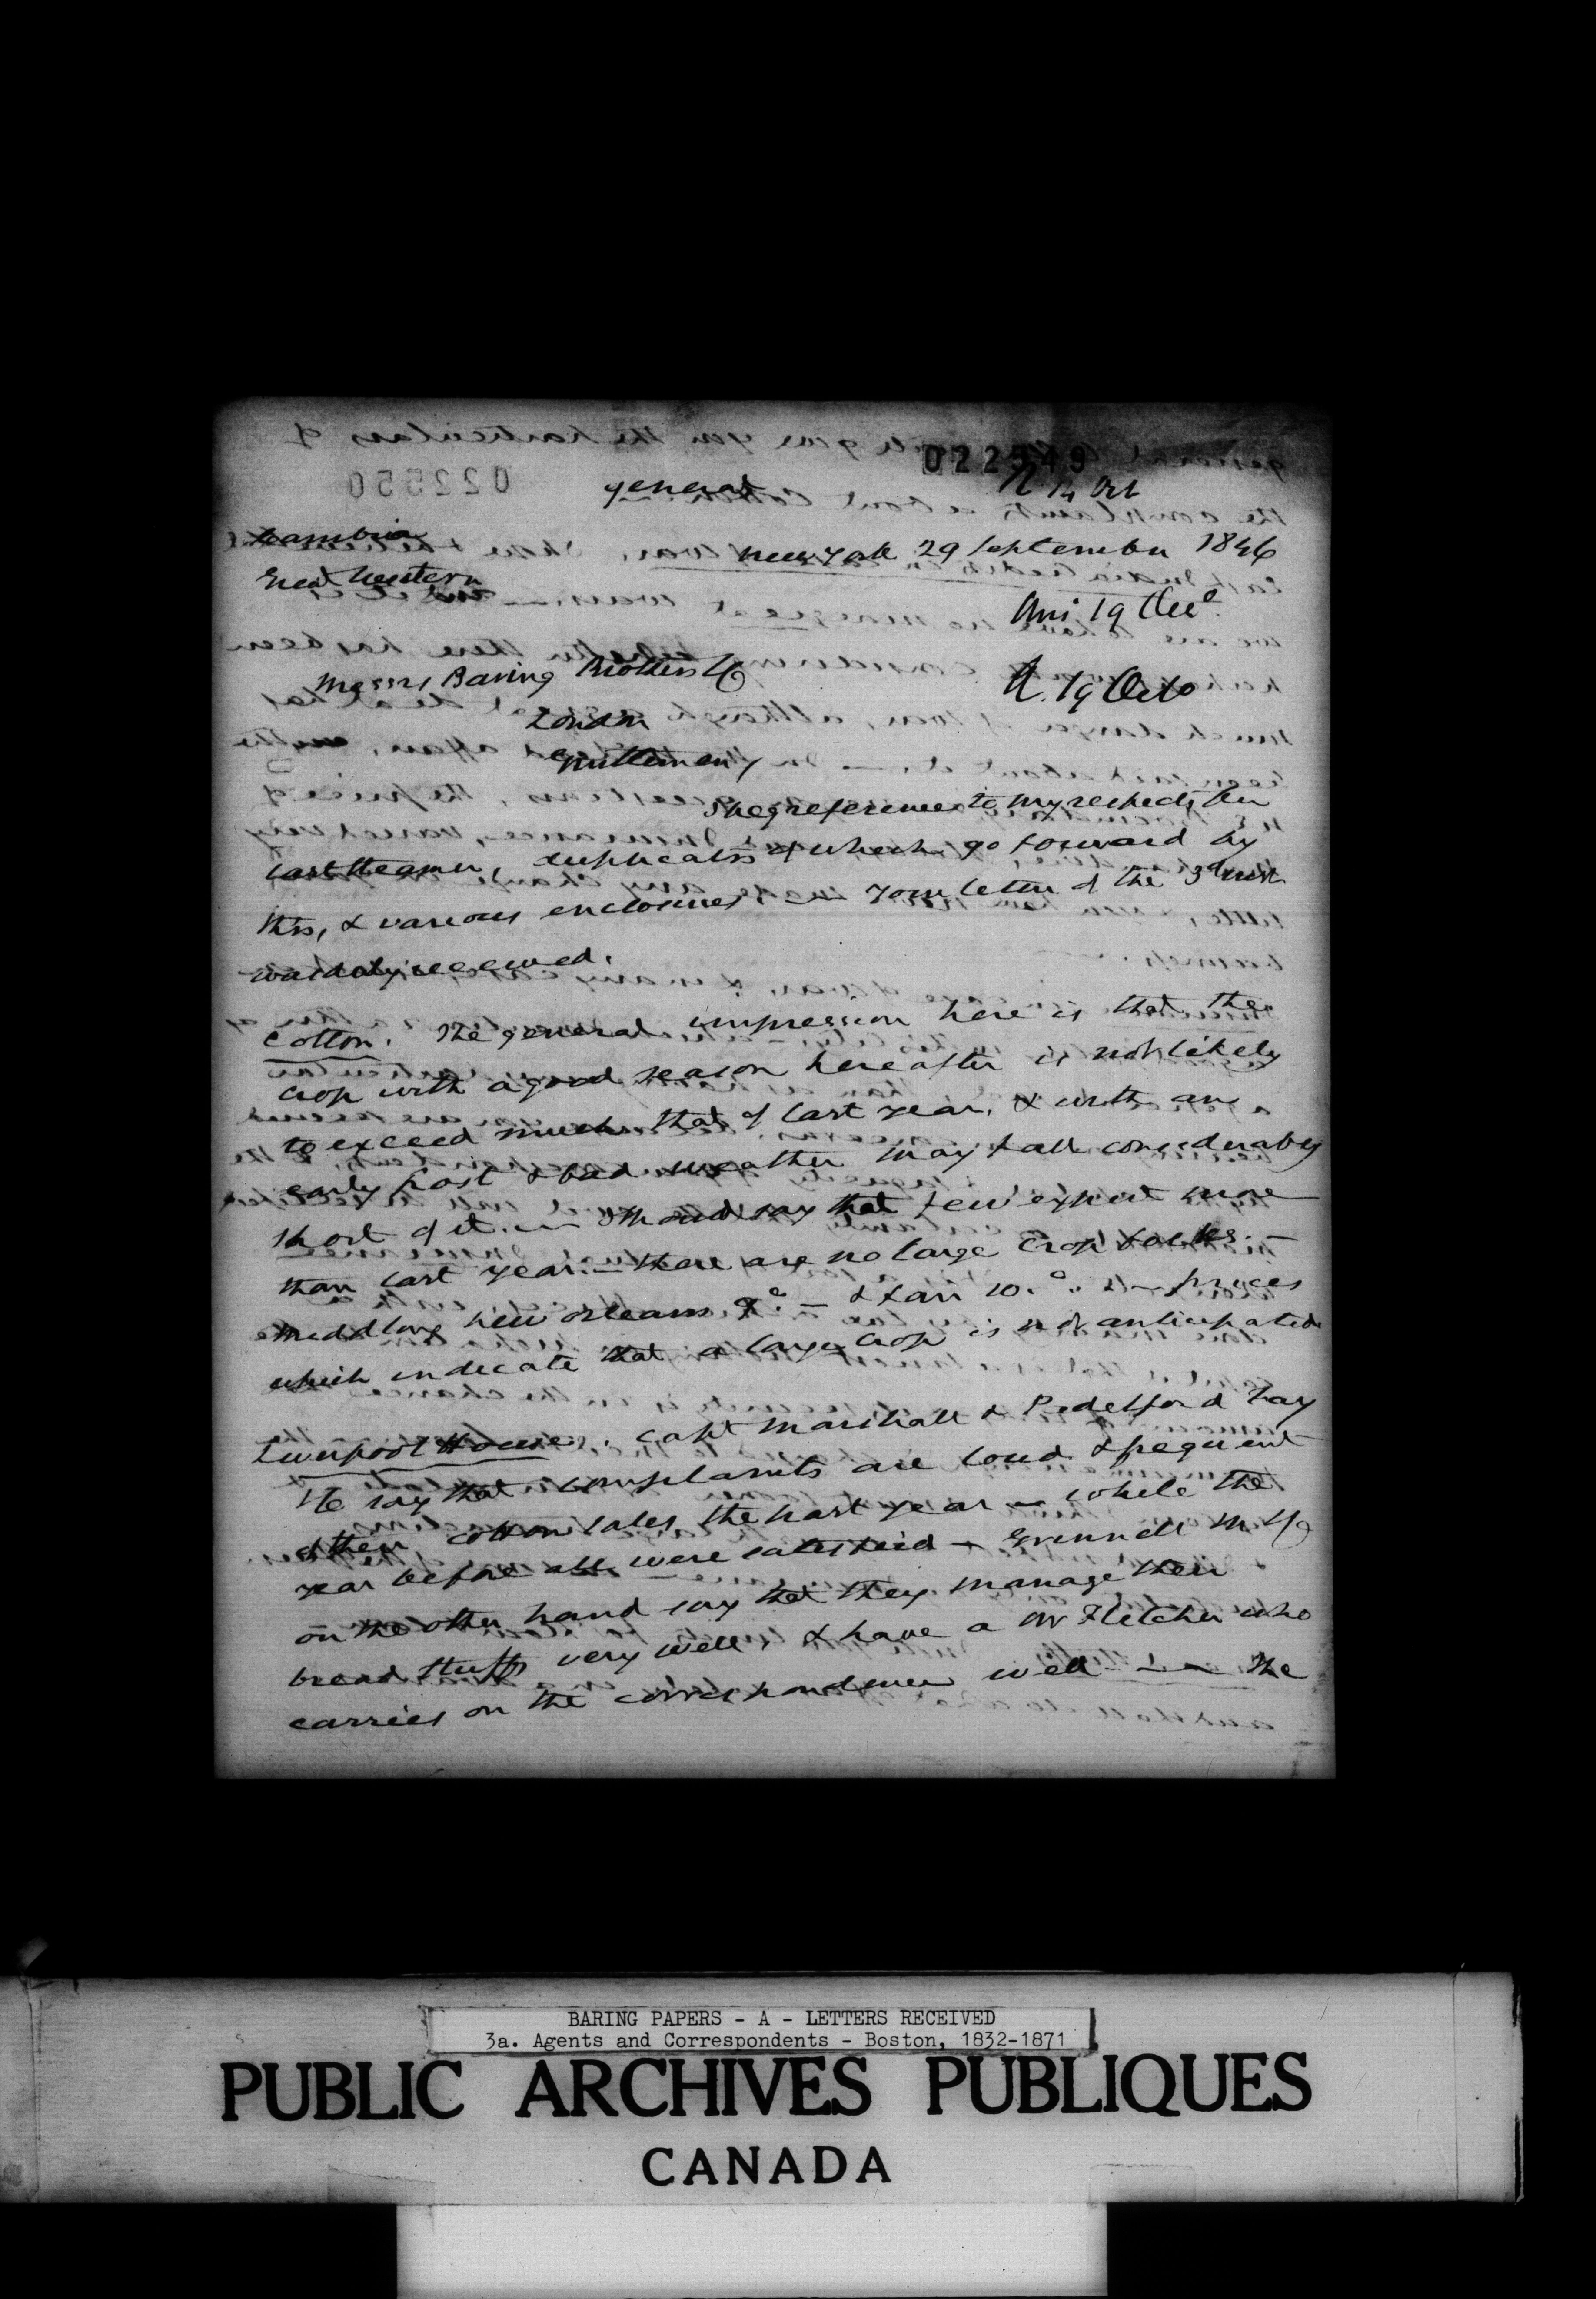 022549
general
R 14 Oct
Cambria
New York 29 September 1846
Great Western
Messrs Baring Brothers & Co
R. 19 Octo
London
Gentlemen,
I beg reference to my respects per
last steamer, duplicates of which go forward by
this, & various enclosures — Your letter of the 3d inst
was duly received.
Cotton. The general impression here is that the
crop with a good season hereafter is not likely
to exceed much that of last year, & with an
early frost & bad weather may fall considerably
short of it. — I should say that few expect more
than last year. — there are no large crop
middling New Orleans — & fair 10. c. — prices
which indicate that a large crop is not anticipated
Liverpool House. Capt Marshall & Pedelford Fay
& Co say that complaints are loud & frequent
of their cotton sales the past year — while the
year before all were satisfied — Grinnell M & Co
on the other hand say that they manage their
bread stuffs very well, & have a Mr Fletcher who
carries on the correspondence well — The
BARING PAPERS - A - LETTERS RECEIVED
3a. Agents and Correspondents - Boston, 1832-1871
PUBLIC ARCHIVES PUBLIQUES
CANADA